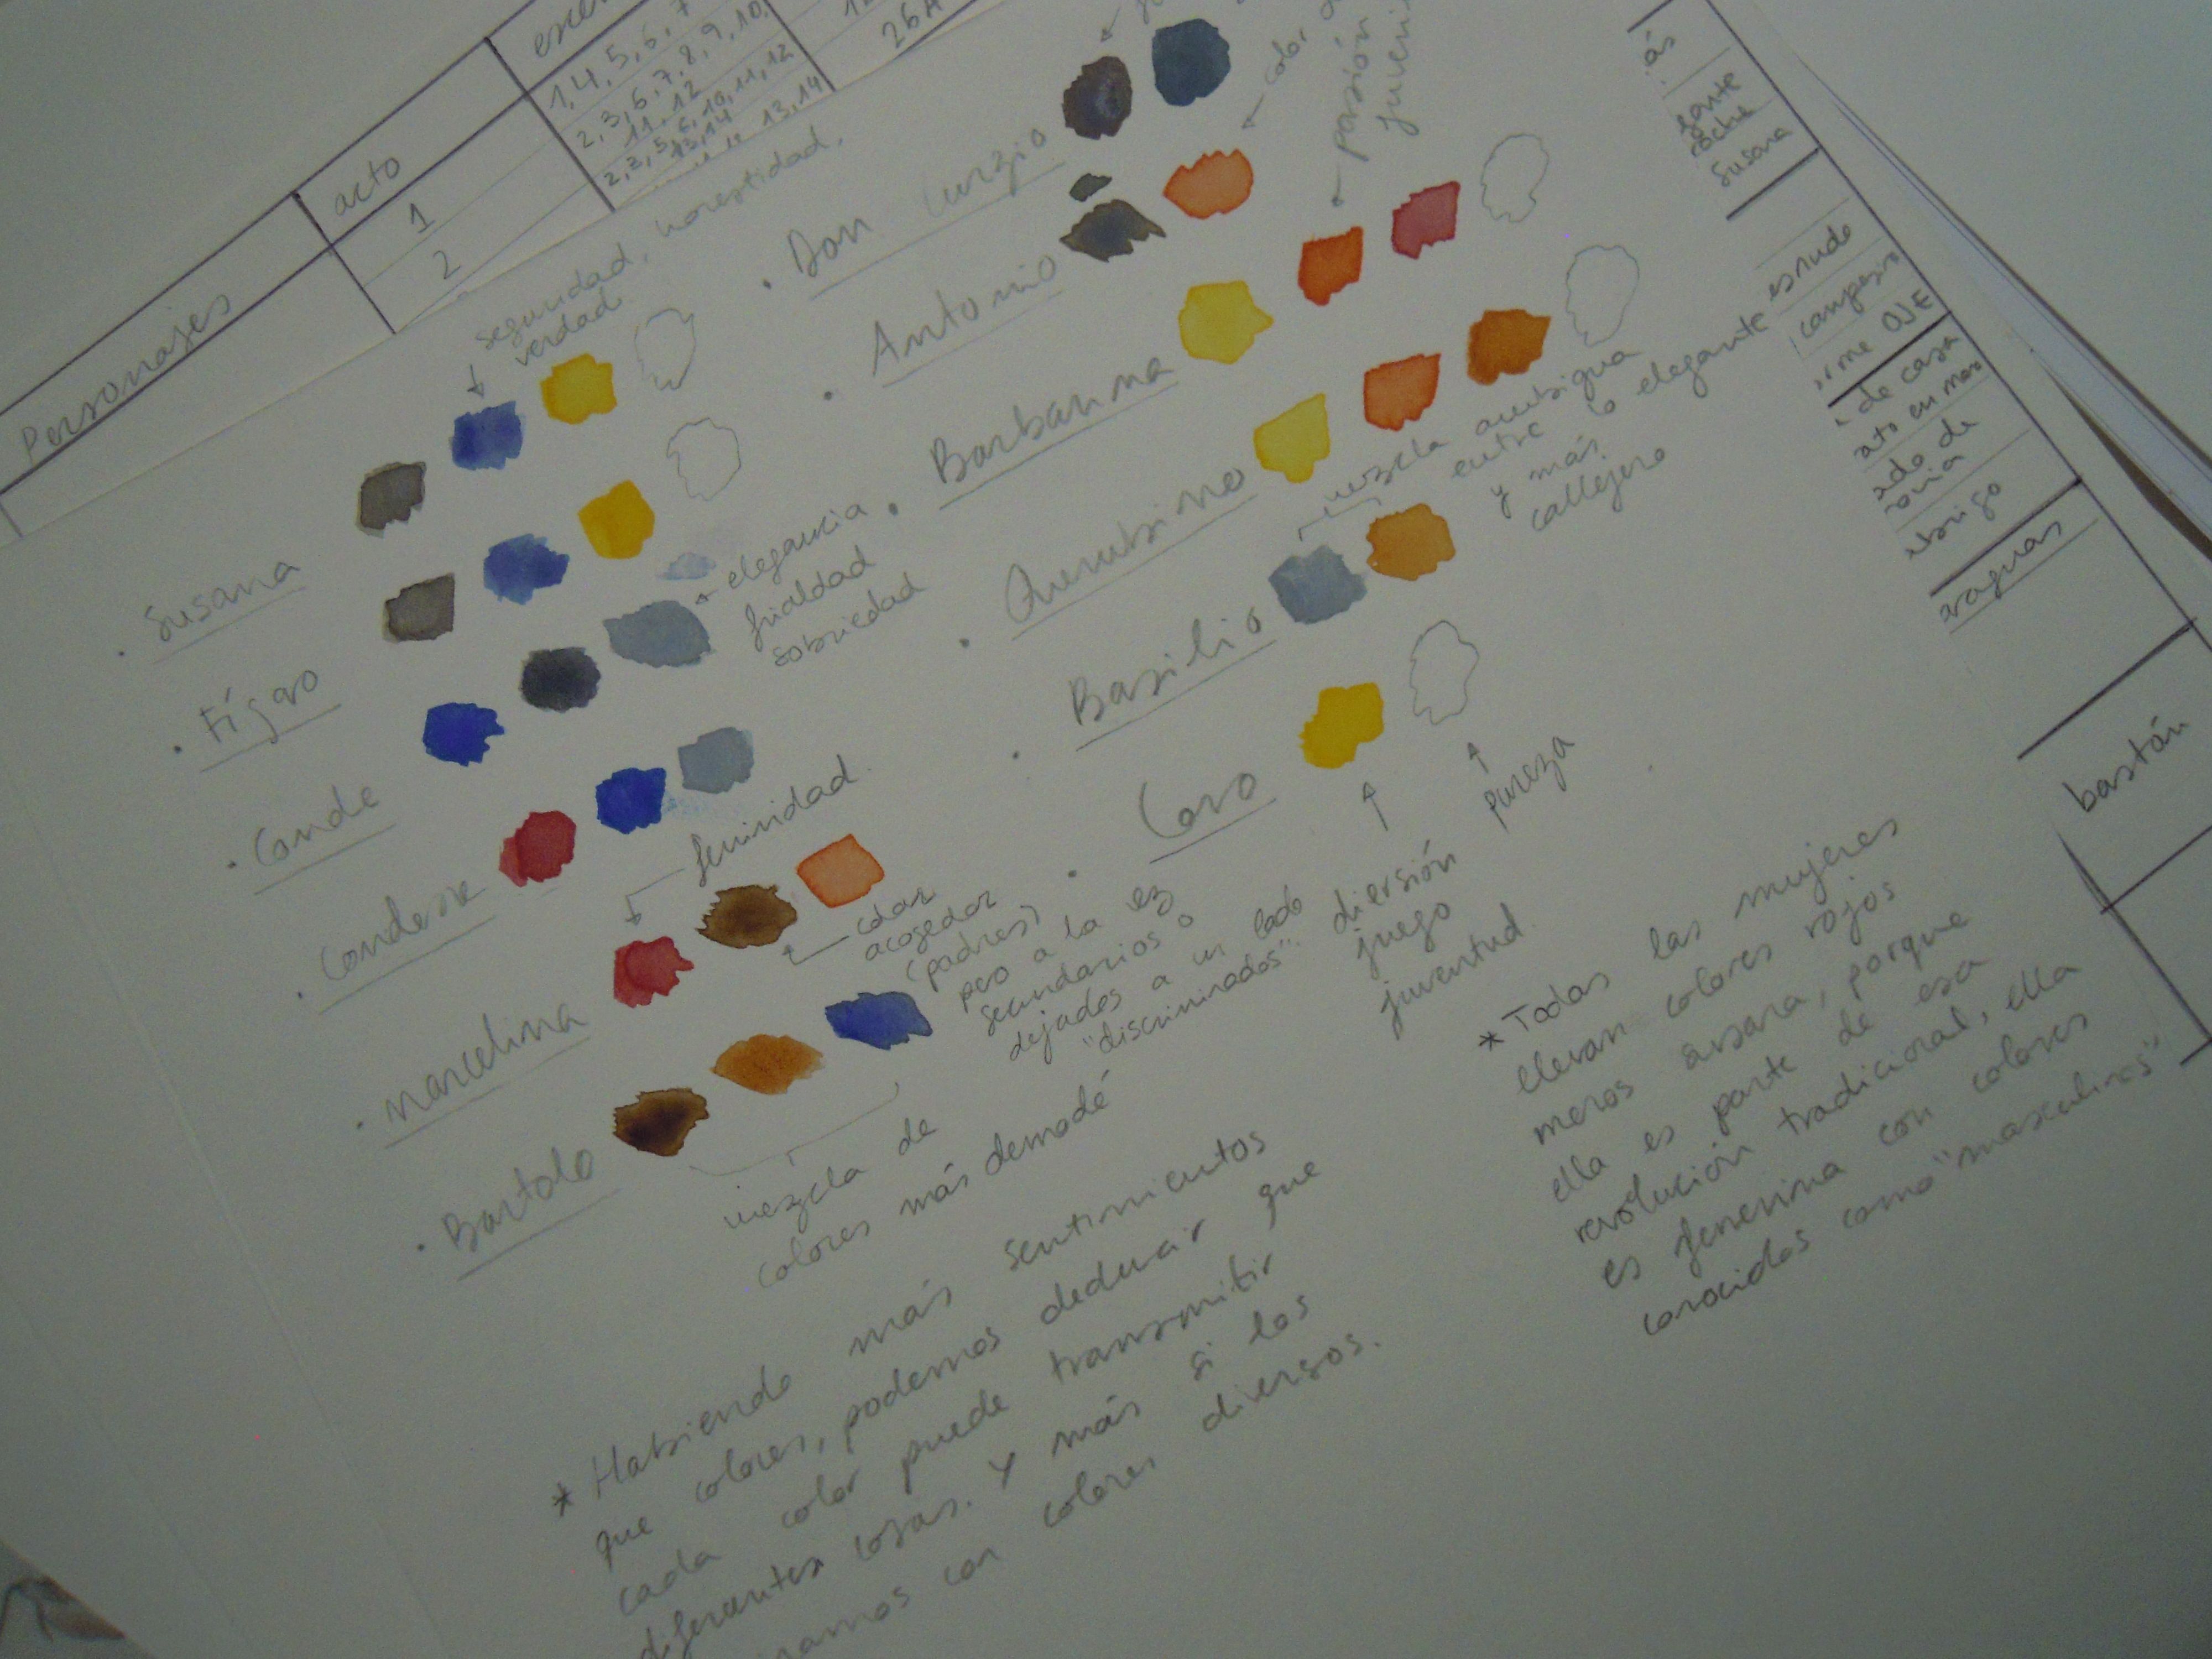 Personajes
acto
1
2
1, 4, 5, 6, 7
2, 3, 6, 7, 8, 9, 10,
11, 12
2, 3, 5, 6, 10, 11, 12
13, 14
" " 13, 14
26A
• Susana
seguridad, honestidad,
verdad
• Fígaro
• Conde
elegancia
frialdad
sobriedad
• Condesa
• Marcelina
feminidad.
color
acogedor
(padres)
pero a la vez
secundarios o
dejados a un lado
"discriminados".
• Bartolo
mezcla de
colores más demodé
• Don Curzio
• Antonio
color
• Barbarina
pasión
juvenil
• Querubino
• Basilio
mezcla ambigua
entre lo elegante
y más
callejero
• Coro
diversión
juego
juventud.
pureza
* Habiendo más sentimientos
que colores, podemos deducir que
cada color puede transmitir
diferentes cosas. Y más si los
con colores diversos.
* Todas las mujeres
llevan colores rojos
menos Susana, porque
ella es parte de esa
revolución tradicional, ella
es femenina con colores
conocidos como "masculinos"
ás
Susana
esnudo
campesin
de casa
ado de
ovia
abrigo
araguas
bastón